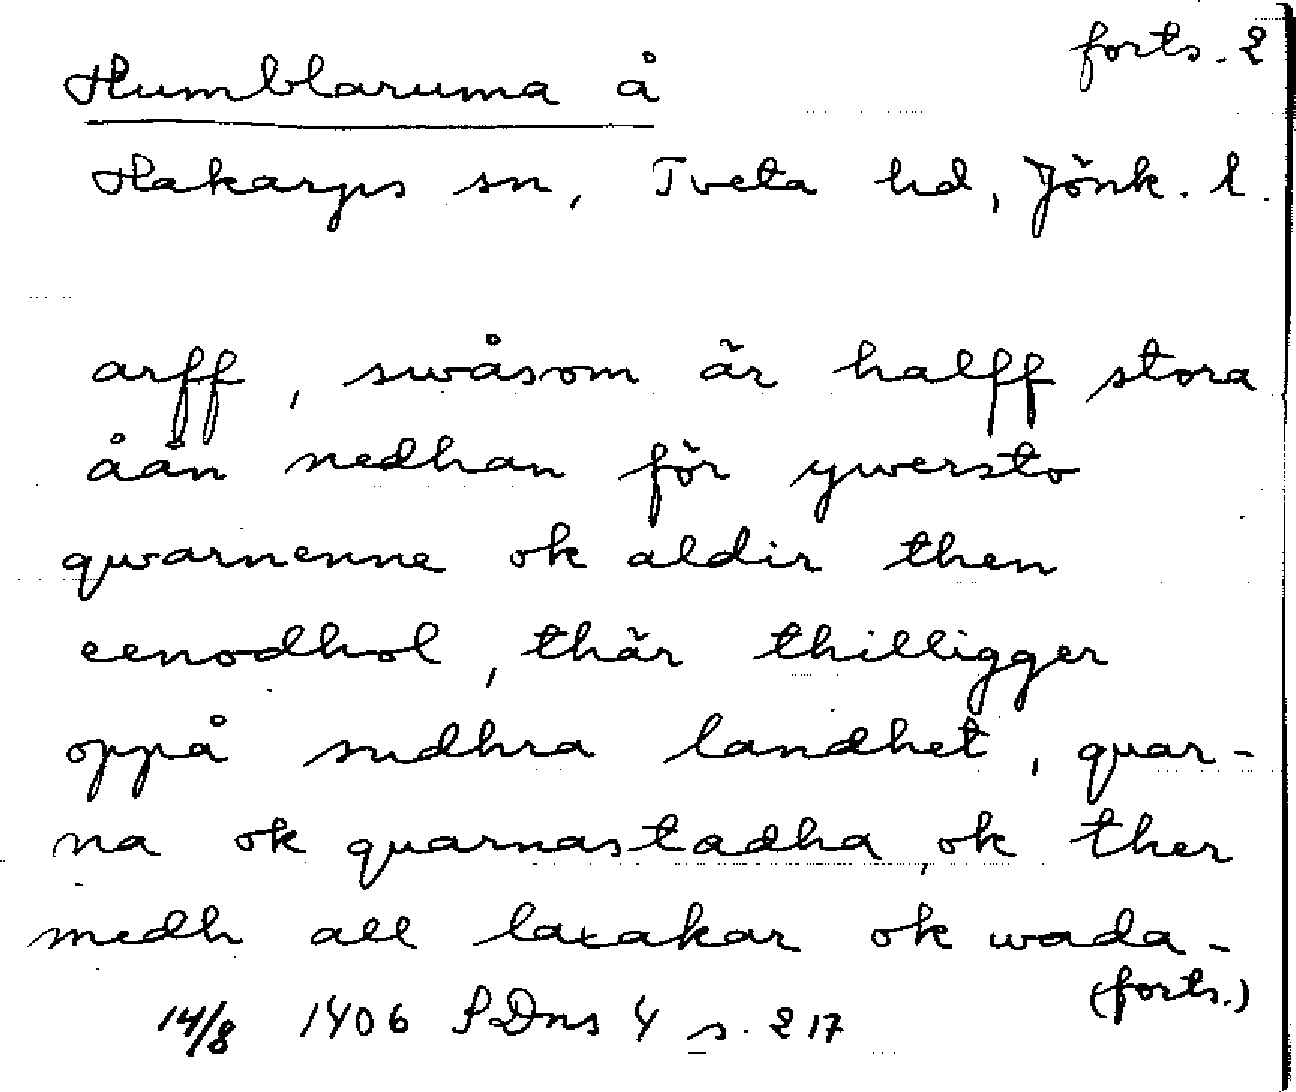 forts. 2
Humblaruma å
Hakarps sn, Tveta hd, Jönk. l.
arff, swåsom är halff stora
åån nedhan för ywersto
qwarnenne ok aldir then
eenodhol, thär thilligger
oppå sudhra landhet, quar-
na ok quarnastadha, ok ther
medh all laxakar ok wada-
(forts.)
14/8 1406 SDns 4 s. 217